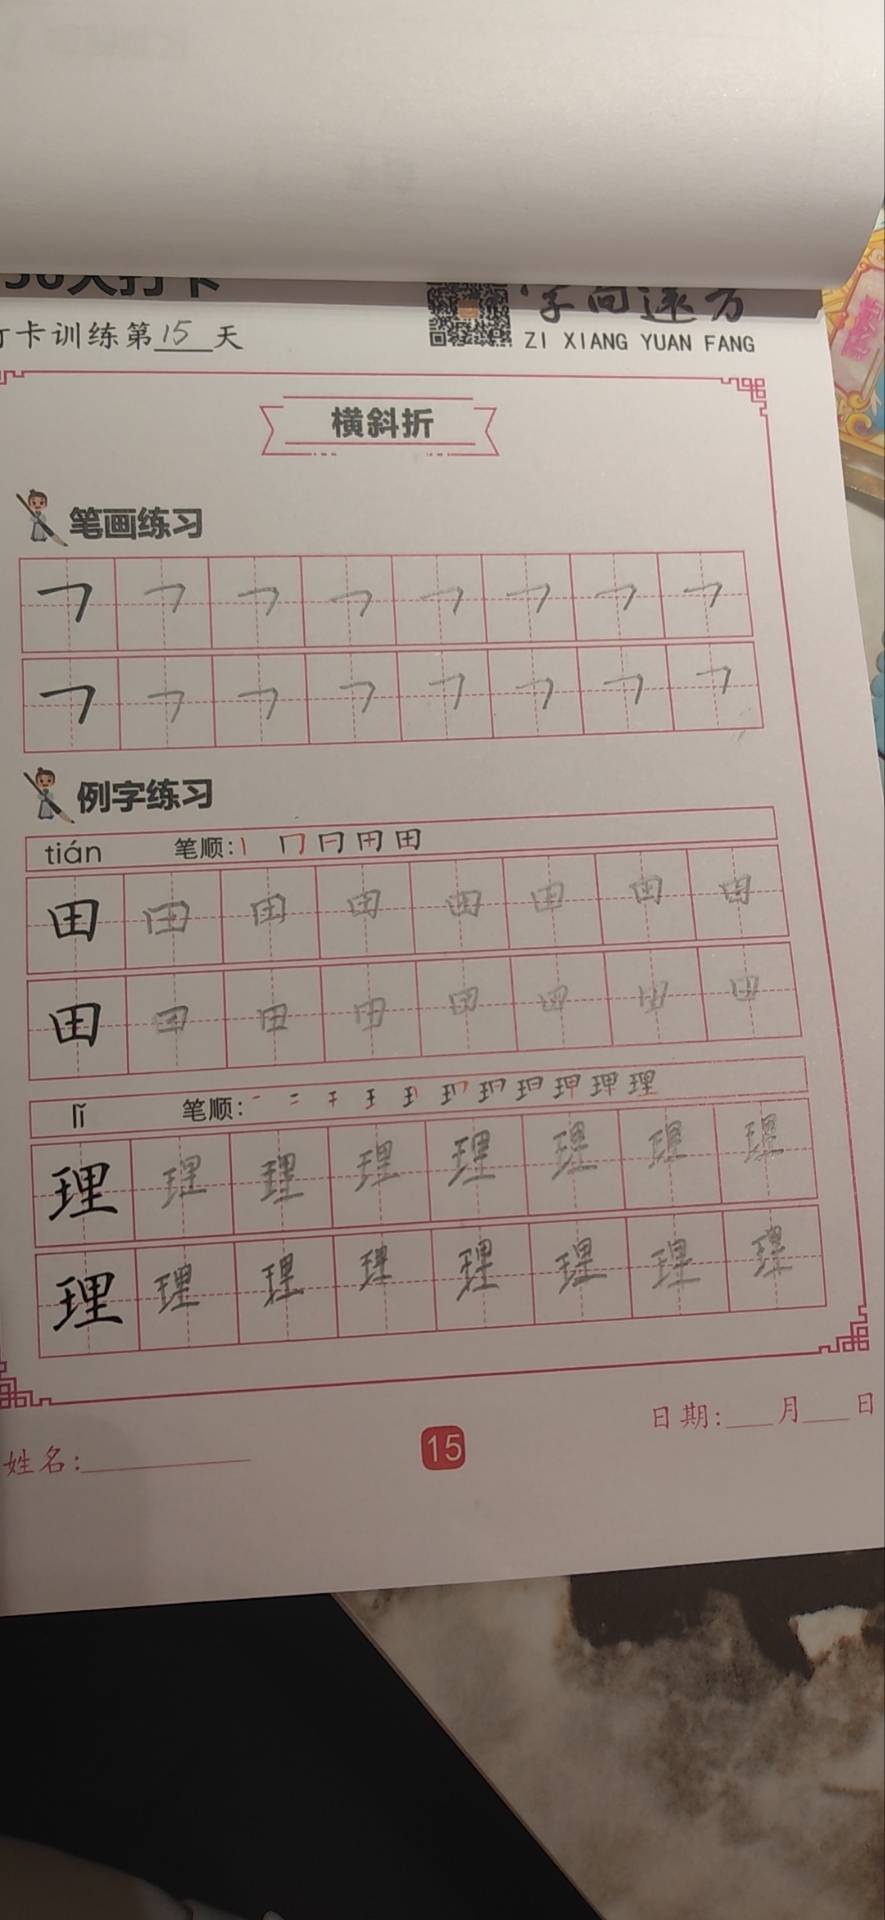 打卡训练第15天
字向速方
ZI XIANG YUAN FANG
横斜折
笔画练习
例字练习
tián 笔顺:丨 冂 冃 田 田
田 田 田 田 田 田 田 田
田 田 田 田 田 田 田 田
lǐ 笔顺:
理 理 理 理 理 理 理 理
理 理 理 理 理 理 理 理
日期:____月____日
姓名:
15